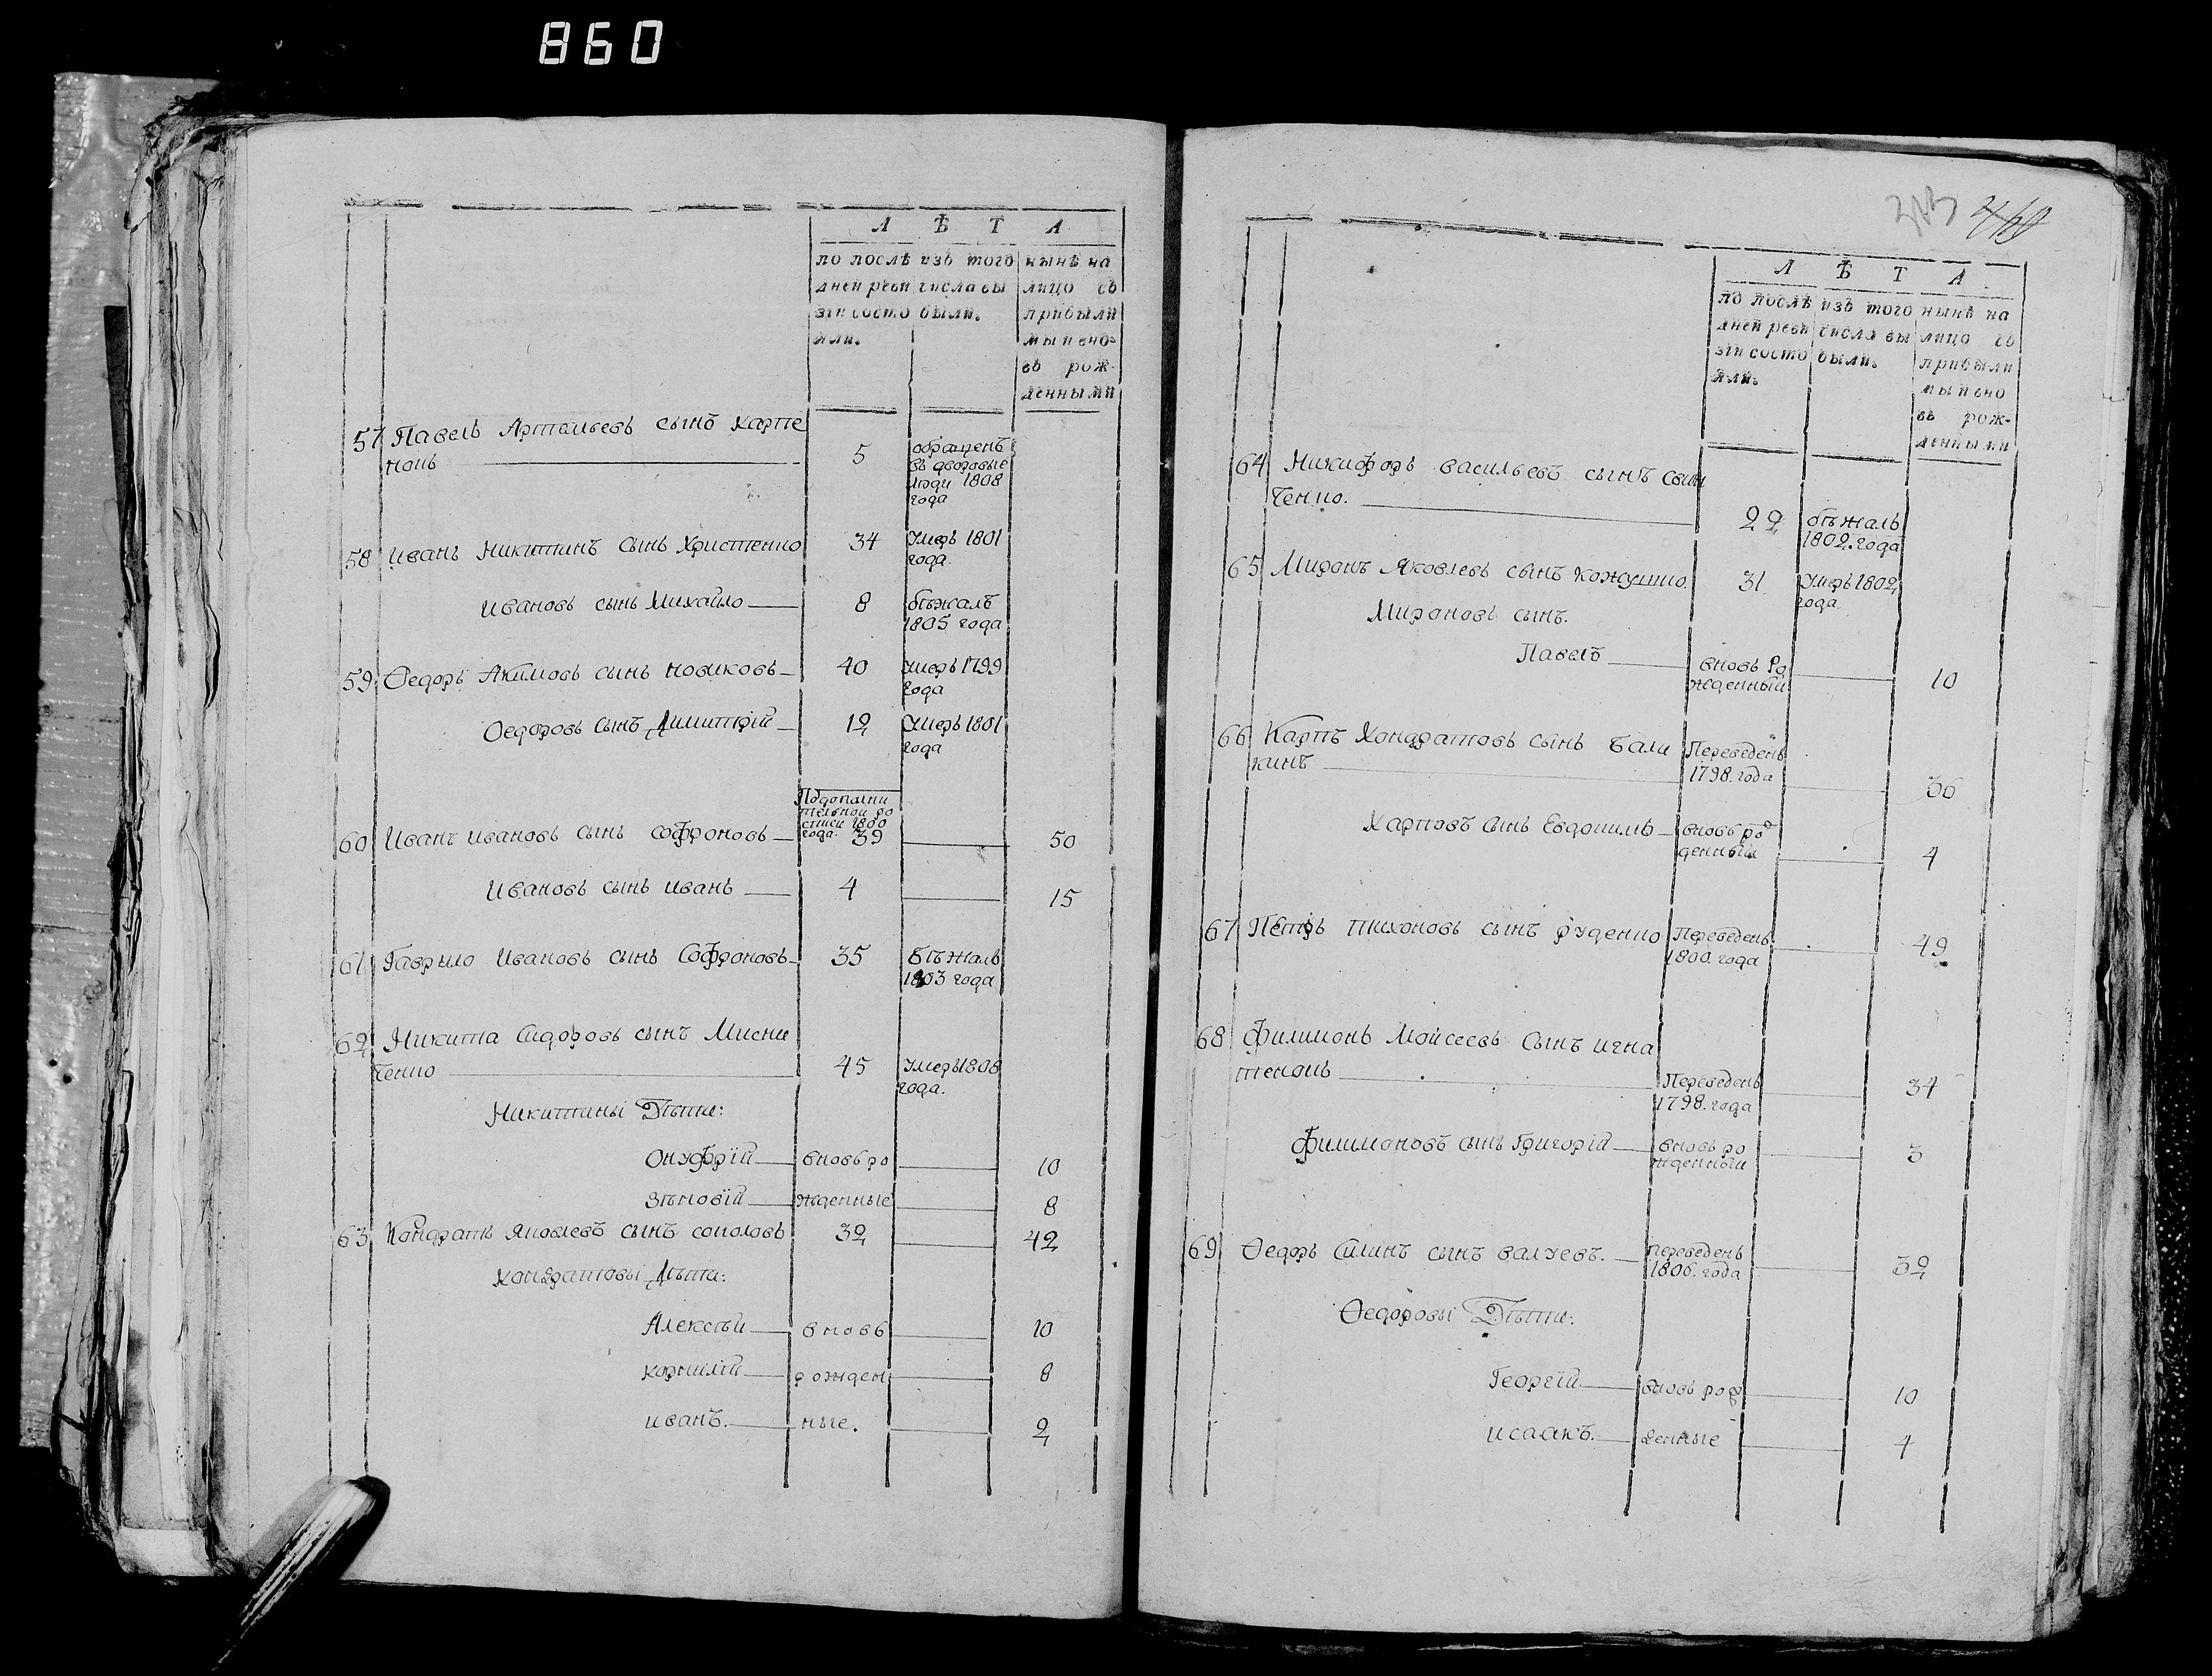 860
Л Ѣ Т А
по послѣ изъ того нынѣ на
дней реви числа вы лицо съ
зіи состо были. прибыли
яли. мы и вно-
въ рож-
денными
57 Павелъ Артемьевъ сынъ Карпе 5 обращенъ
нокъ въ дворовые
люди 1808
года
58 иванъ Никитинъ сынъ Христенко 34 Умеръ 1801
года.
ивановъ сынъ Михайло 8 бѣжалъ
1805 года
59 Ѳедоръ Акимовъ сынъ новиковъ 40 Умеръ 1799
года
Ѳедоровъ сынъ Димитрій 12 Умеръ 1801
года
По дополни
тельной ро
списи 1800
60 Иванъ ивановъ сынъ софроновъ года. 39 50
Ивановъ сынъ иванъ 4 15
61 Гаврыло Ивановъ сынъ Софроновъ 35 Бѣжалъ
1803 года
62 Никита Сидоровъ сынъ Мисни
ченко 45 Умеръ 1808
года.
Никитины Дѣти:
Онуфрій вновь ро 10
Зѣновій жденные 8
63 Кондратъ Яковлевъ сынъ соколовъ 32 42
Кондратовы Дѣти:
Алексѣй вновь 10
корнилій рожден 8
иванъ. ные. 2
Л Ѣ Т А
по послѣ изъ того нынѣ на
дней реви числа вы лицо съ
зіи состо были. прибыли
яли. мы и вно
въ рож-
денными
64 Никифоръ васильевъ сынъ Сви
ченко. 22 бѣжалъ
1802. года
65 Миронъ Яковлевъ сынъ кожушко. 31 Умеръ 1802
года.
Мироновъ сынъ.
Павелъ вновь Ро
жденный 10
66 Карпъ Кондратовъ сынъ бали Переведенъ
кинъ 1798. года 36
Карповъ сынъ Евдокимъ вновь рож
денный 4
67 Пётръ тихоновъ сынъ руденко Переведенъ 49
1800. года
68 Филимонъ Моисеевъ Сынъ игна
тенокъ Переведенъ 34
1798. года
Филимоновъ сынъ Григорій вновь ро 3
жденный
69 Ѳедоръ Силинъ сынъ валуевъ. переведенъ 32
1806. года
Ѳедоровы Дѣти:
Георгій вновь рож 10
исаакъ. денные 4